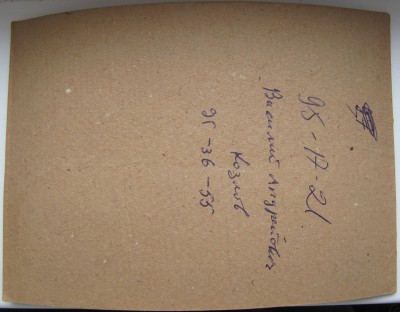 95-17-21
Василий Андреевич
Козлов
95-36-55